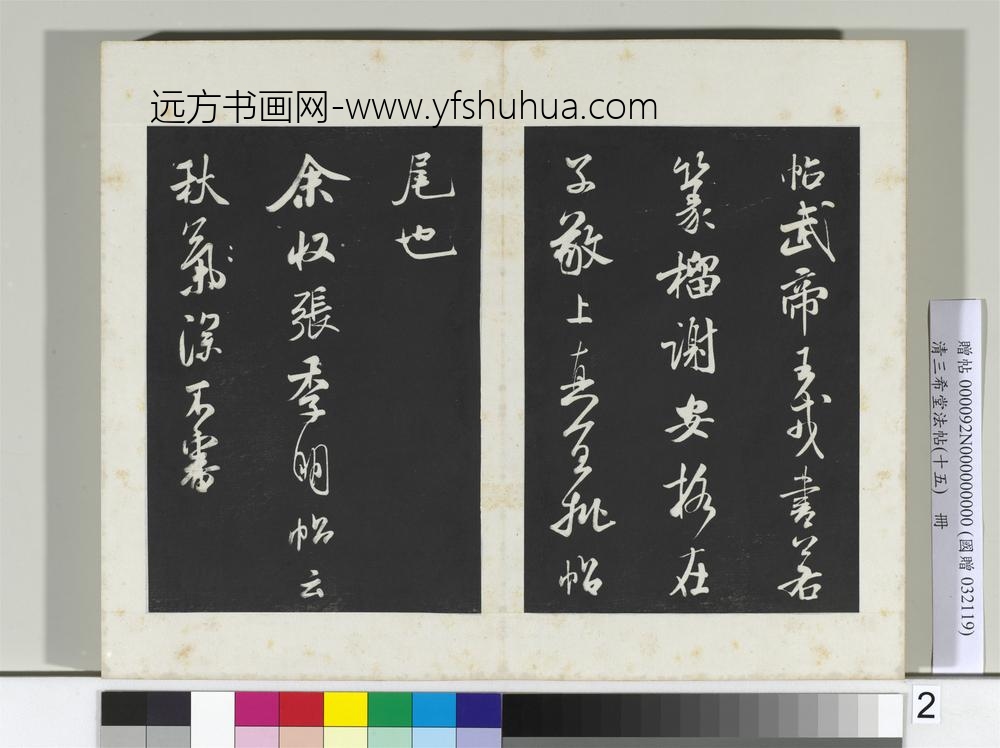 远方书画网-www.yfshuhua.com
帖武帝王戎書若
篆榴謝安格在
子敬上真宜批帖
尾也
余收張季明帖云
秋氣深不審
贈帖 000092N000000000 (國贈 032119)
清三希堂法帖(十五) 冊
2